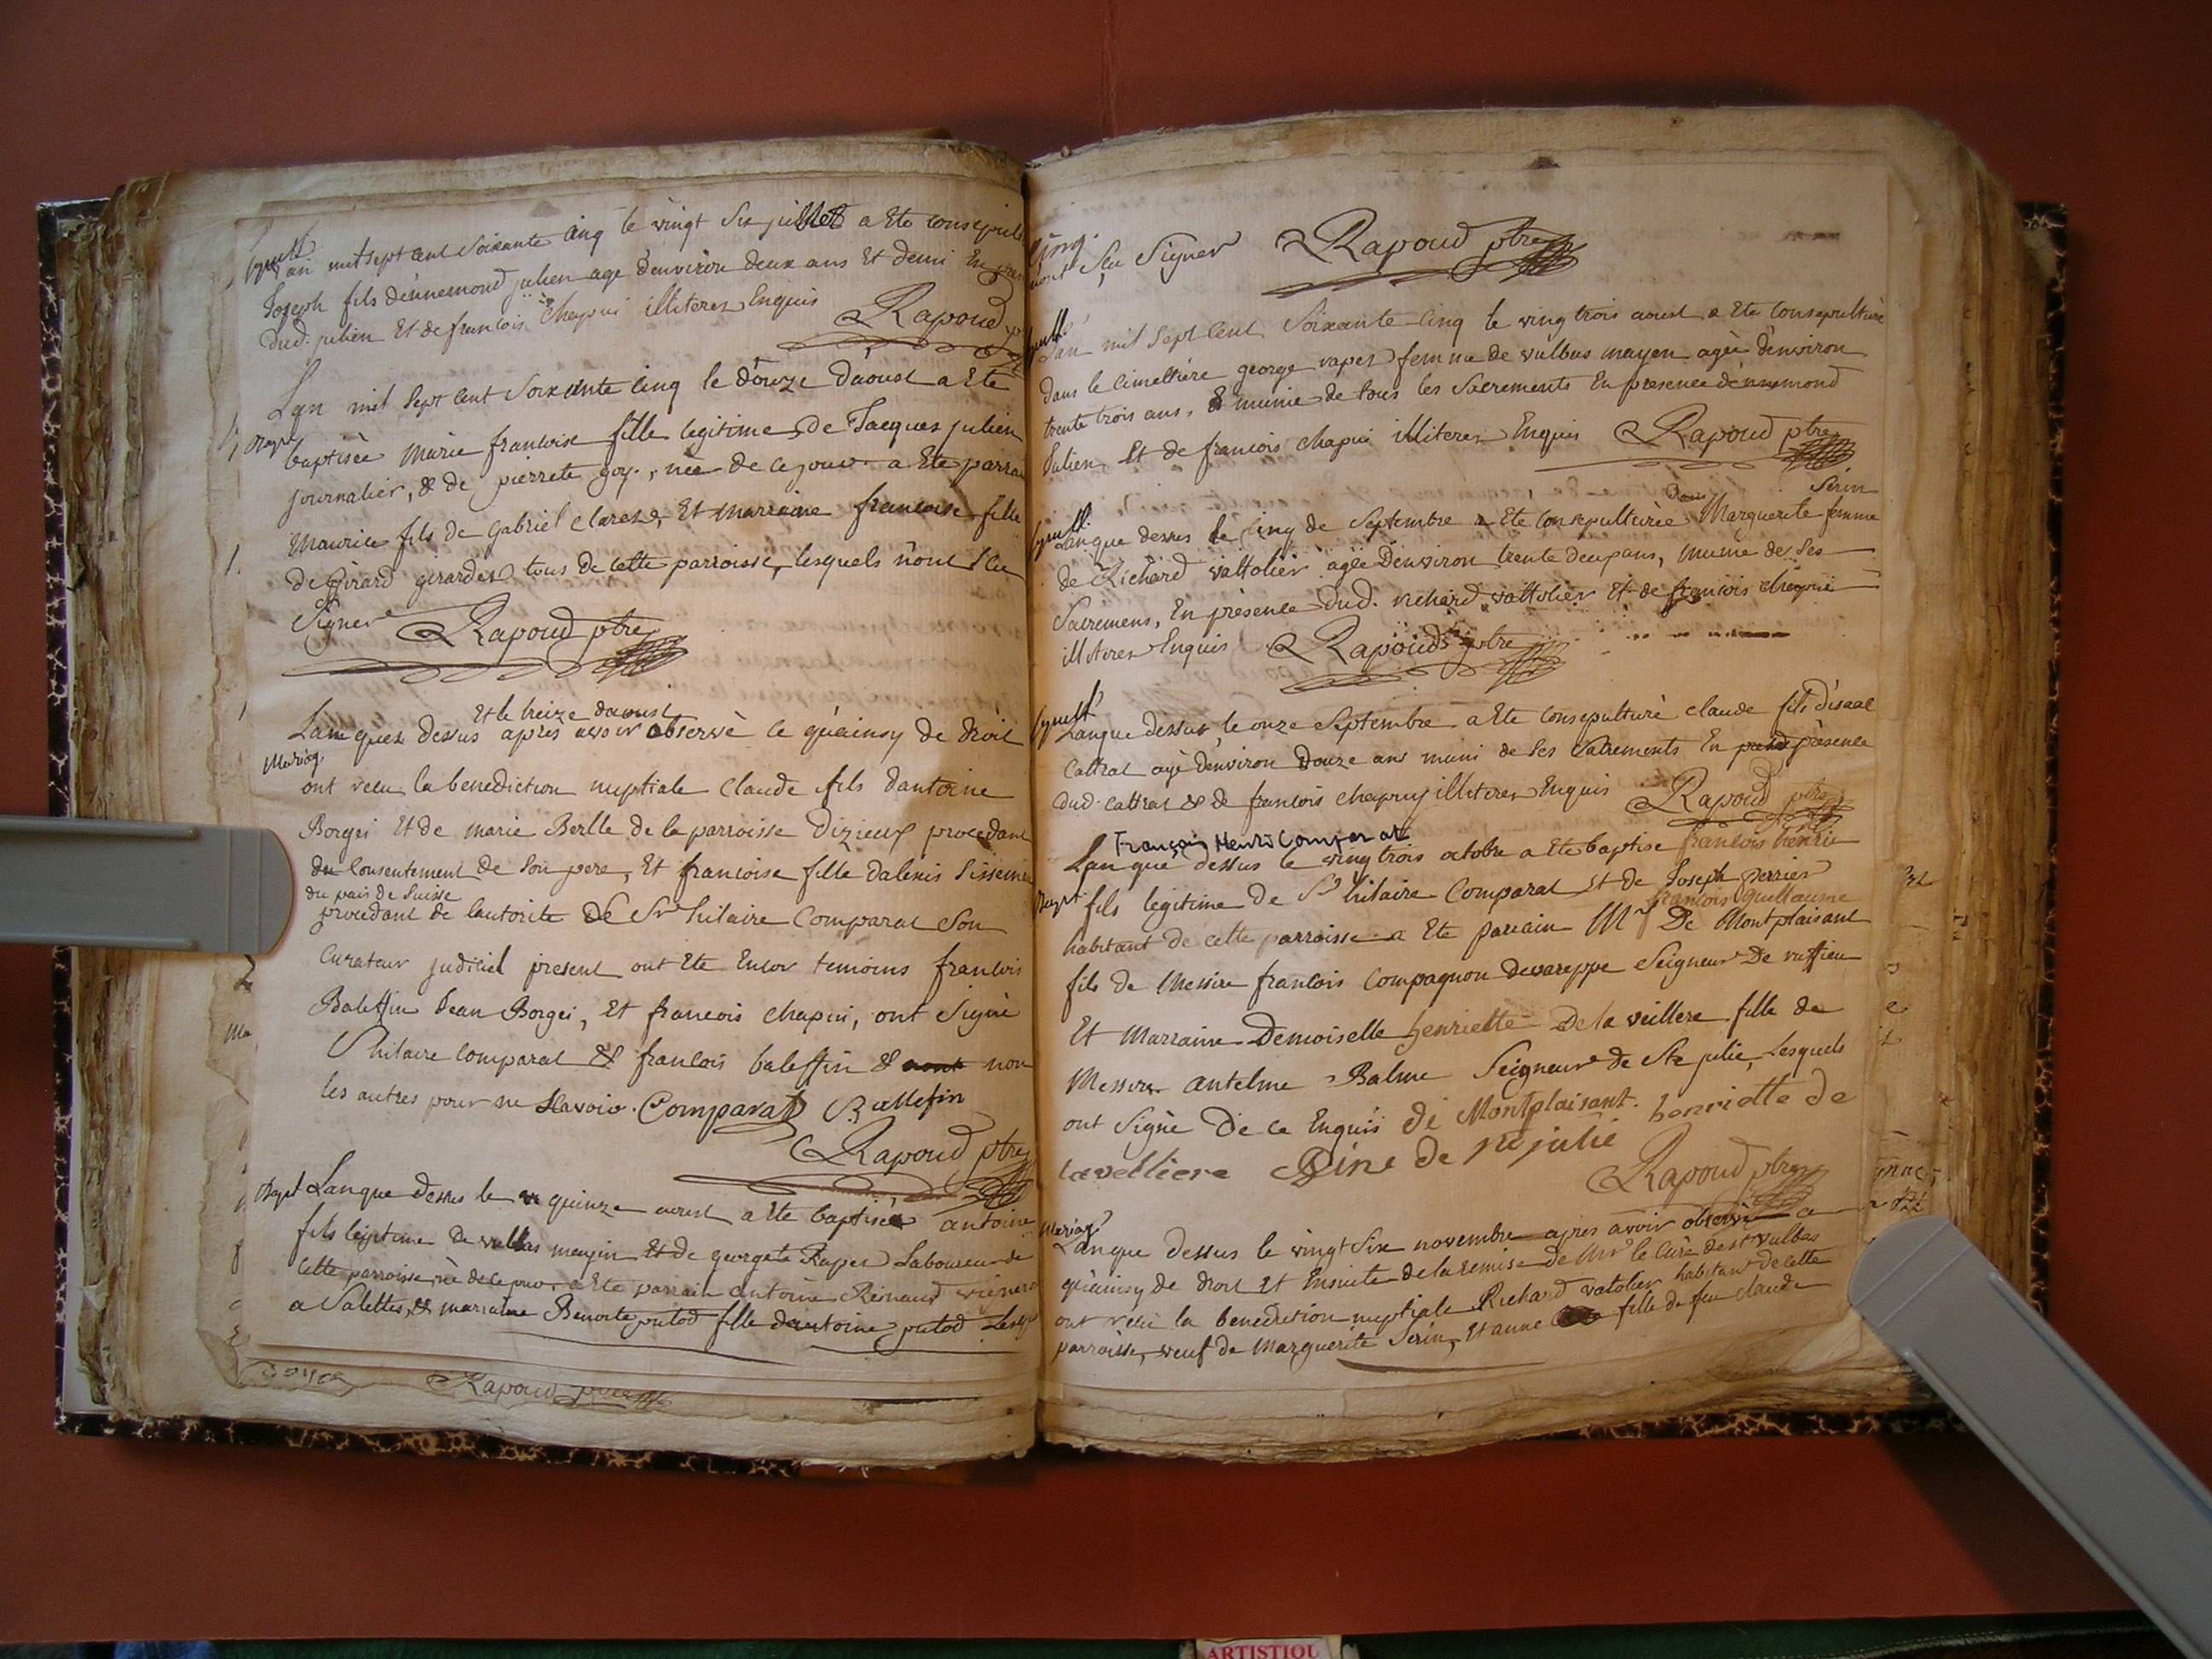 sepult
Lan mil sept cent soixante cinq le vingt six juillet a ete consepult
Joseph fils dennemond julien age denviron deux ans Et demi En
dud. julien Et de francois chapui illiteres Enquis Rapoud
Lan mil Sept cent Soixante cinq le douze daoust a Ete
Bapt
baptisèe Marie francoise fille legitime de Jacques julien
journalier, & de pierrete goy, nèe de ce jour a Ete parrain
Maurice fils de Gabriel Claret & Et marraine francoise fille
De Girard girardet tous de cette parroisse, lesquels nont scu
Signer Rapoud ptre
Et le treize daoust
Lan que dessus apres avoir observè ce quainsy de droit
Mariag
ont recu la benediction nuptiale Claude fils dantoine
Borgei Et de marie Berlle de la parroisse Dizieux procedant
du Consentement de Son pere, Et francoise fille dalexis
du pais de Suisse
procedant de lautorite de Sr hilaire Comparat Son
Curateur judiciel present ont Ete Encor temoins francois
Baleffin Jean Borgei, Et francois chapui, ont Signè
hilaire Comparat & francois baleffin & nont non
les autres pour ne Scavoir. Comparat Ballefin
Rapoud ptre
Bapt Lanque dessus le quinze aoust a ete baptisè antoine
fils legitime de vulbas mayin Et de georgete Raper Laboureur de
cette parroisse, nè de ce jour a Ete parrain antoine Reinaud vigneron
a Salettes, & marraine Benoite putod fille dantoine putod
Rapoud ptre
nont Scu Signer Rapoud ptre
sepult
Lan mil Sept cent Soixante cinq le ving trois aoust a Ete Consepulturè
dans le Cimeltiére george raper femme de vulbas mayen agèe denviron
trente trois ans, & munie de tous les Sacrements En presence dennemond
Julien Et de francois chapui illiteres Enquis Rapoud ptre
Serin
Sepult
Lanque dessus le cinq de Septembre a Ete Consepulturèe Marguerite femme
de Richard vattolier agèe Denviron trente deux ans, munie de Ses
Sacremens, En prèsence dud. richard vattolier Et de francois
illiteres Enquis Rapoud ptre
Sepult
Lanque dessus le onze Septembre a Ete Consepulturè claude fils disaac
Cattrat agè denviron Douze ans muni de Ses Sacrements En prèsence
dud. Cattrat & de francois chapuy illiteres Enquis Rapoud ptre
François Henri Comparat
Lan que dessus le ving trois octobre a ete baptise francois henrie
Bapt fils legitime de Sr hilaire Comparat Et de Joseph perrier
francois guillaume
habitant de cette parroisse a Ete parrain Mr De Montplaisant
fils de Messire francois Compagnon devareppe Seigneur De ruffieu
Et Marraine Demoiselle henriette De la veillere fille de
Messire antelme Balme Seigneur de Ste julie, Lesquels
ont Signè De ce Enquis de Montplaisant. henriette de
lavelliere de ste julie
Rapoud ptre
Mariag
Lanque dessus le vingt Six novembre apres avoir observè ce
quainsy de droit Et Ensuite de la remise de Mr le Curè de st vulbas
ont recu la benediction nuptiale Richard vatolier habitant de cette
parroisse, veuf de Marguerite Serin, Et anne fille de feu claude
ARTISTIQU